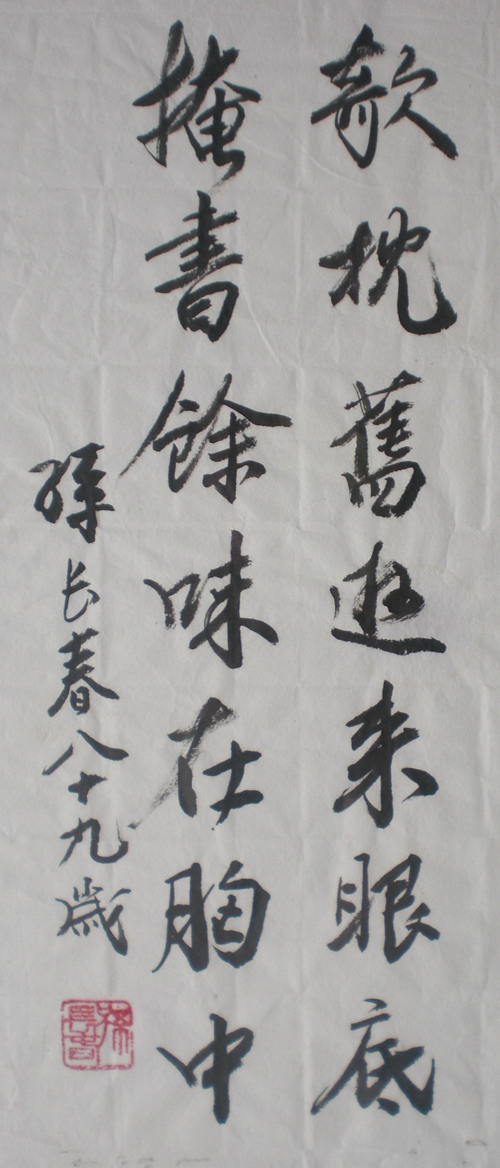 欹枕舊遊来眼底
掩書餘味在胸中
孫长春八十九歲
孫長春